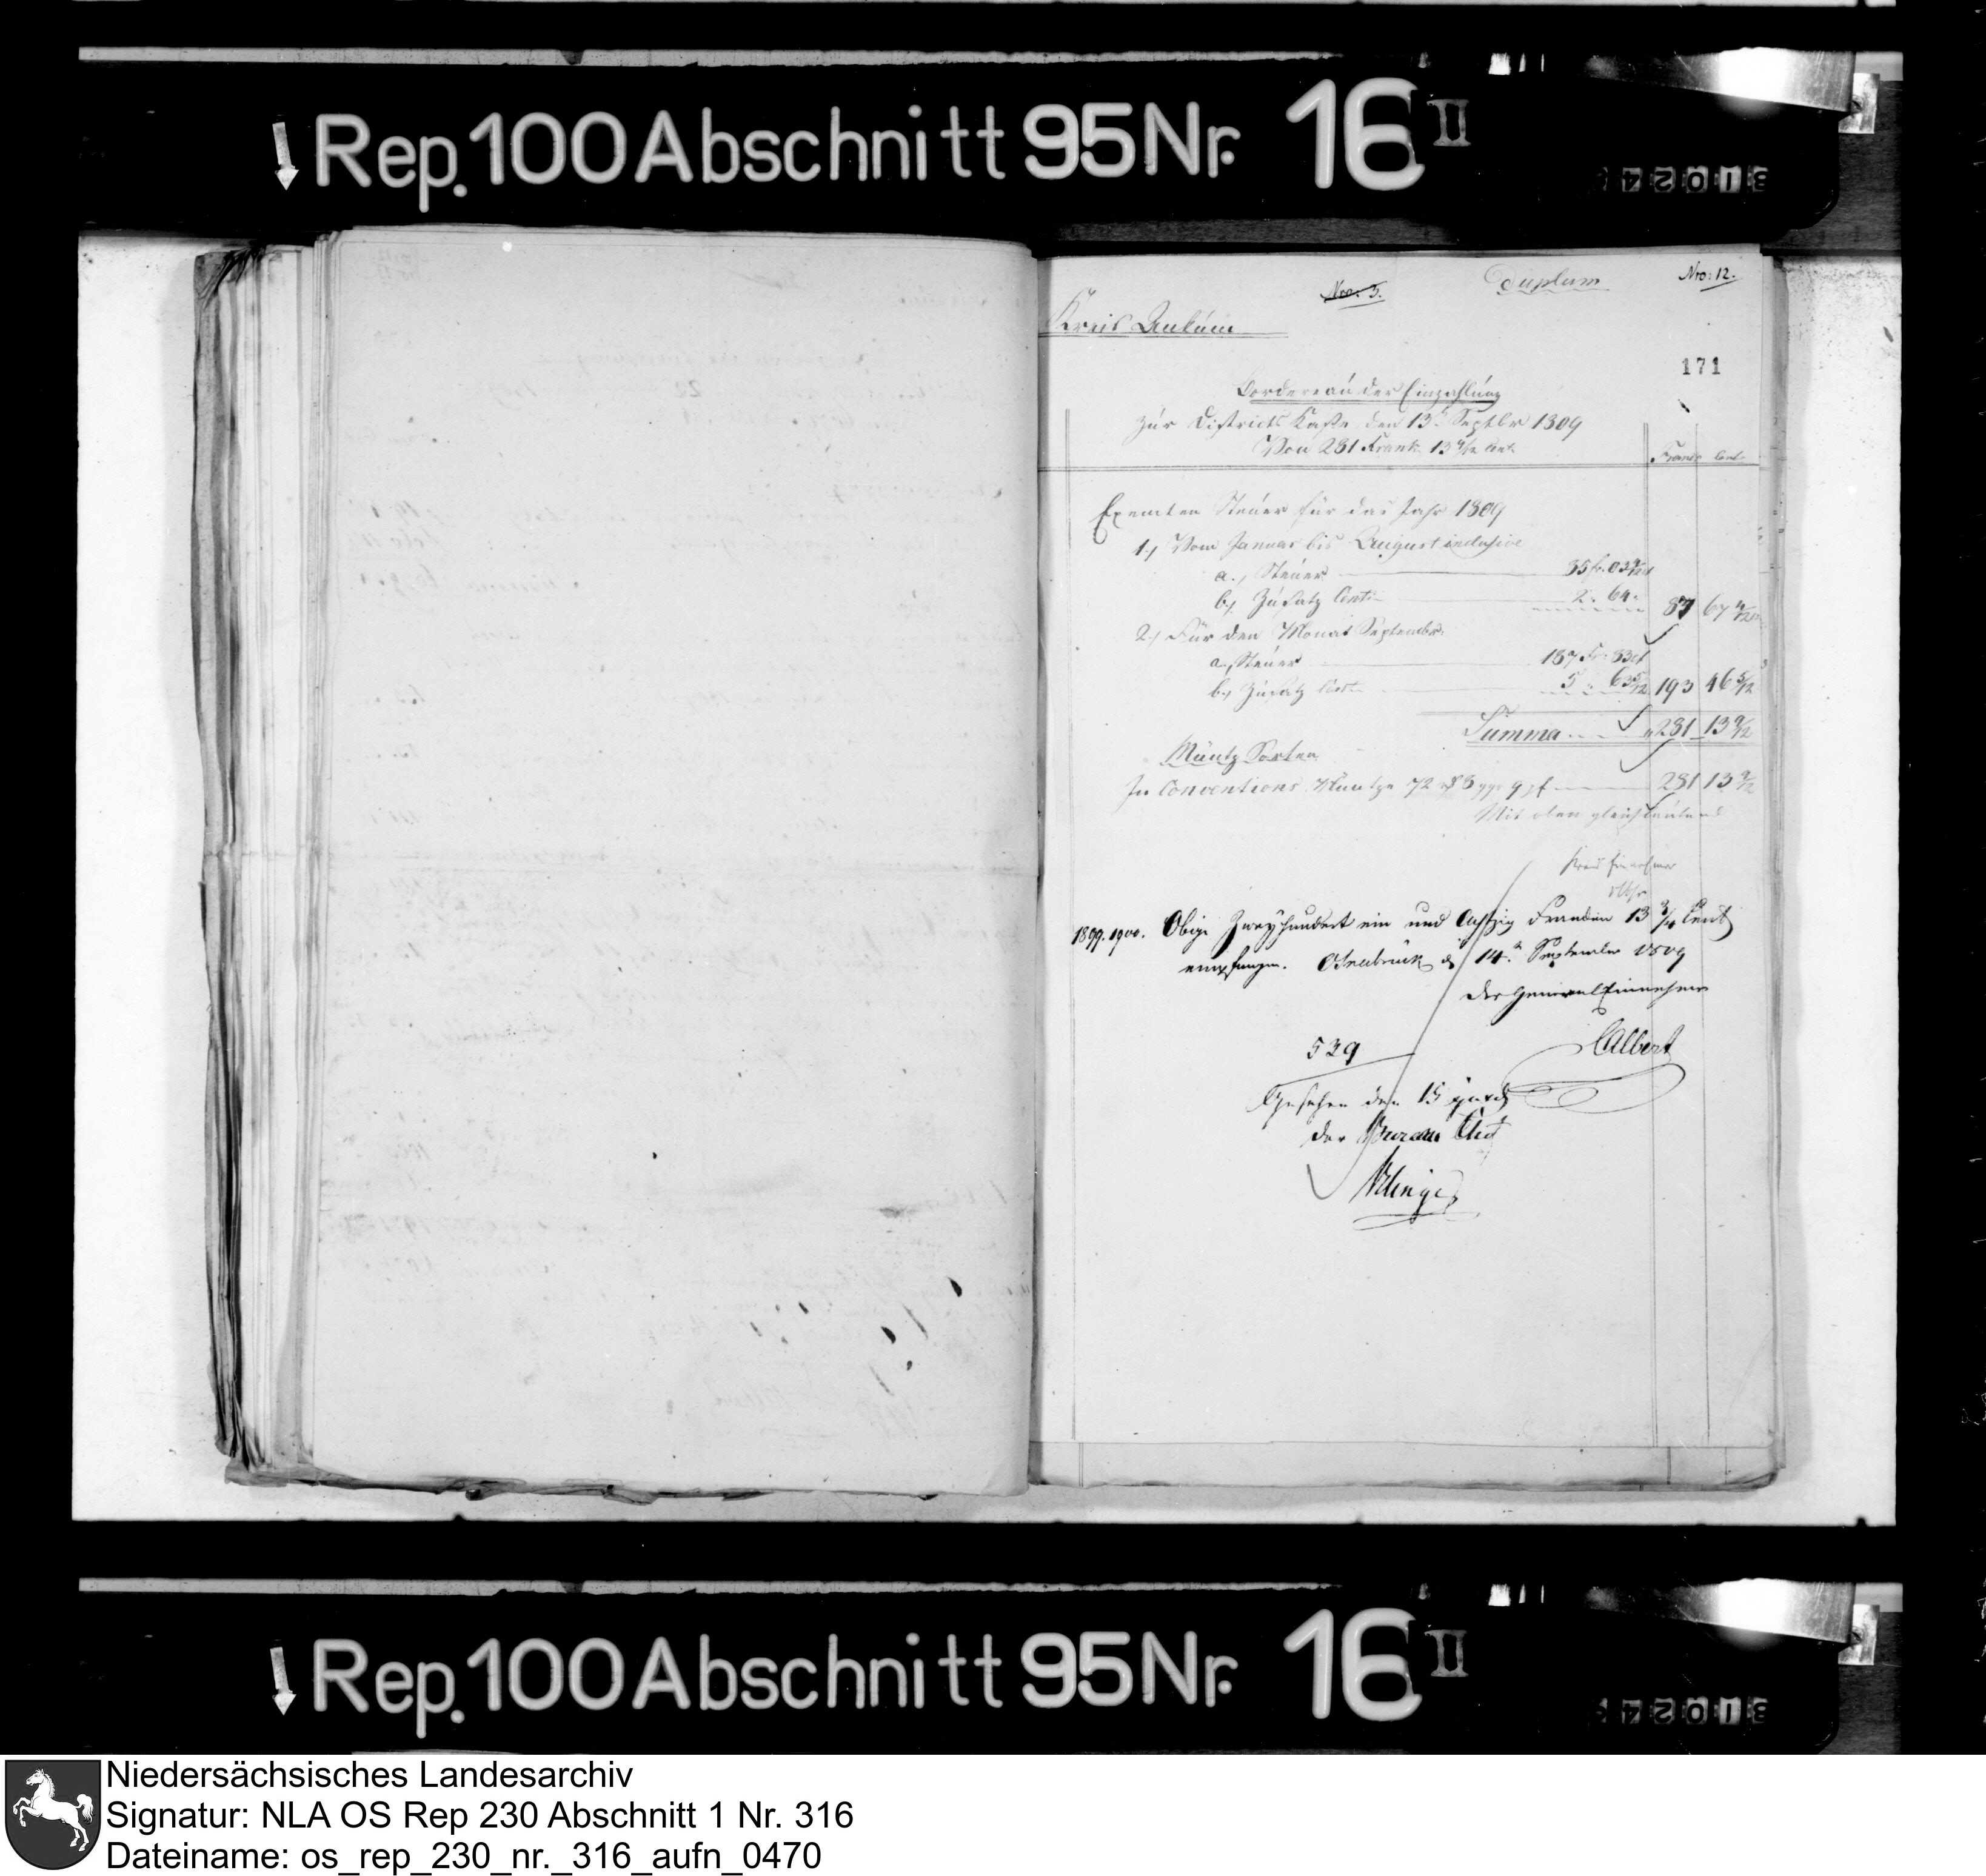 Rep. 100 Abschnitt 95 Nr. 16 II
Nro: 3.
Duplum
Nro: 12.
Kreis Ankum
171
Bordereau der Einzahlung
zur Districts Kasse den 13t Septbr 1809
Von 281 Frank. 13 9/12 Cent.
Francs Cent
Exemten Steuer für das Jahr 1809
1.) Vom Januar bis August inclusive
a., Steuer
b., Zusatz Cent.
2. 64.
87 67 4/12
2.) Für den Monat Septembr.
a., Steuer 187 Fr. 83 ct
b., Zusatz Cent. 5 63 5/12 193 46 5/12
Summa 281 13 9/12
Müntz Sorten
In Conventions Müntze 72 rt 8 ggr 9 pf 281 13 9/12
Mit oben gleichlautend
Kreis Einnehmer
1899. 1900. Obige Zweyhundert ein und Achtzig Franken 13 3/4 Cent
empfangen. Osnabrück d 14t September 1809
Der General Einnehmer
Albert
529
Gesehen den 15
der Bureau Chef
Rep. 100 Abschnitt 95 Nr. 16 II
Niedersächsisches Landesarchiv
Signatur: NLA OS Rep 230 Abschnitt 1 Nr. 316
Dateiname: os_rep_230_nr._316_aufn_0470